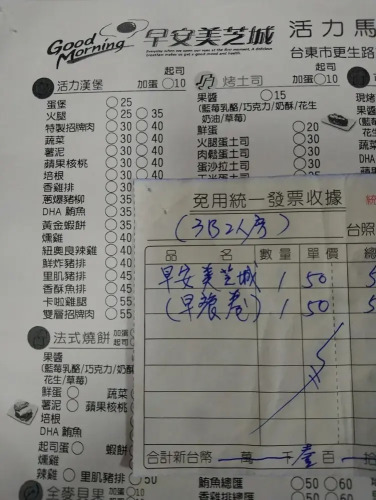 Good Morning 早安美芝城 活力馬
台東市更生路
活力漢堡 加蛋○10 起司
蛋堡 ○25
火腿 ○25 ○35
特製招牌肉 ○30 ○40
蔬菜 ○30 ○40
薯泥 ○30 ○40
蘋果核桃 ○30 ○40
培根 ○30 ○40
香雞排
蔥爆豬柳 35
DHA 鮪魚 35
黃金蝦餅 35
燻雞 35
紐奧良辣雞 40
鮮炸豬排 40
里肌豬排 45
香酥魚排 45
卡啦雞腿 55
雙層招牌肉 55
烤土司 起司 加蛋○10
果醬 ○15
(藍莓乳酪/巧克力/奶酥/花生
奶油/草莓)
鮮蛋 ○20
火腿蛋土司 ○30
肉鬆蛋土司
蛋沙拉土司
玉米蛋土司
現烤
果醬
(藍莓
免用統一發票收據
(3B2人房) 台照
品名 數量 單價 總
早安美芝城 1 50 5
(早餐卷) 1 50 5
合計新台幣 萬 千 壹 百 拾
法式燒餅 加蛋 起司
果醬
(藍莓乳酪/巧克力/奶酥
花生/草莓)
鮮蛋 ○ 蔬菜
薯泥 ○ 蘋果核桃
培根
DHA 鮪魚
起司蛋 ○ 蝦餅
燻雞
辣雞 ○ 里肌豬 ○50 ○60
鮪魚總匯 ○50 ○60
香雞排總匯
全麥貝果